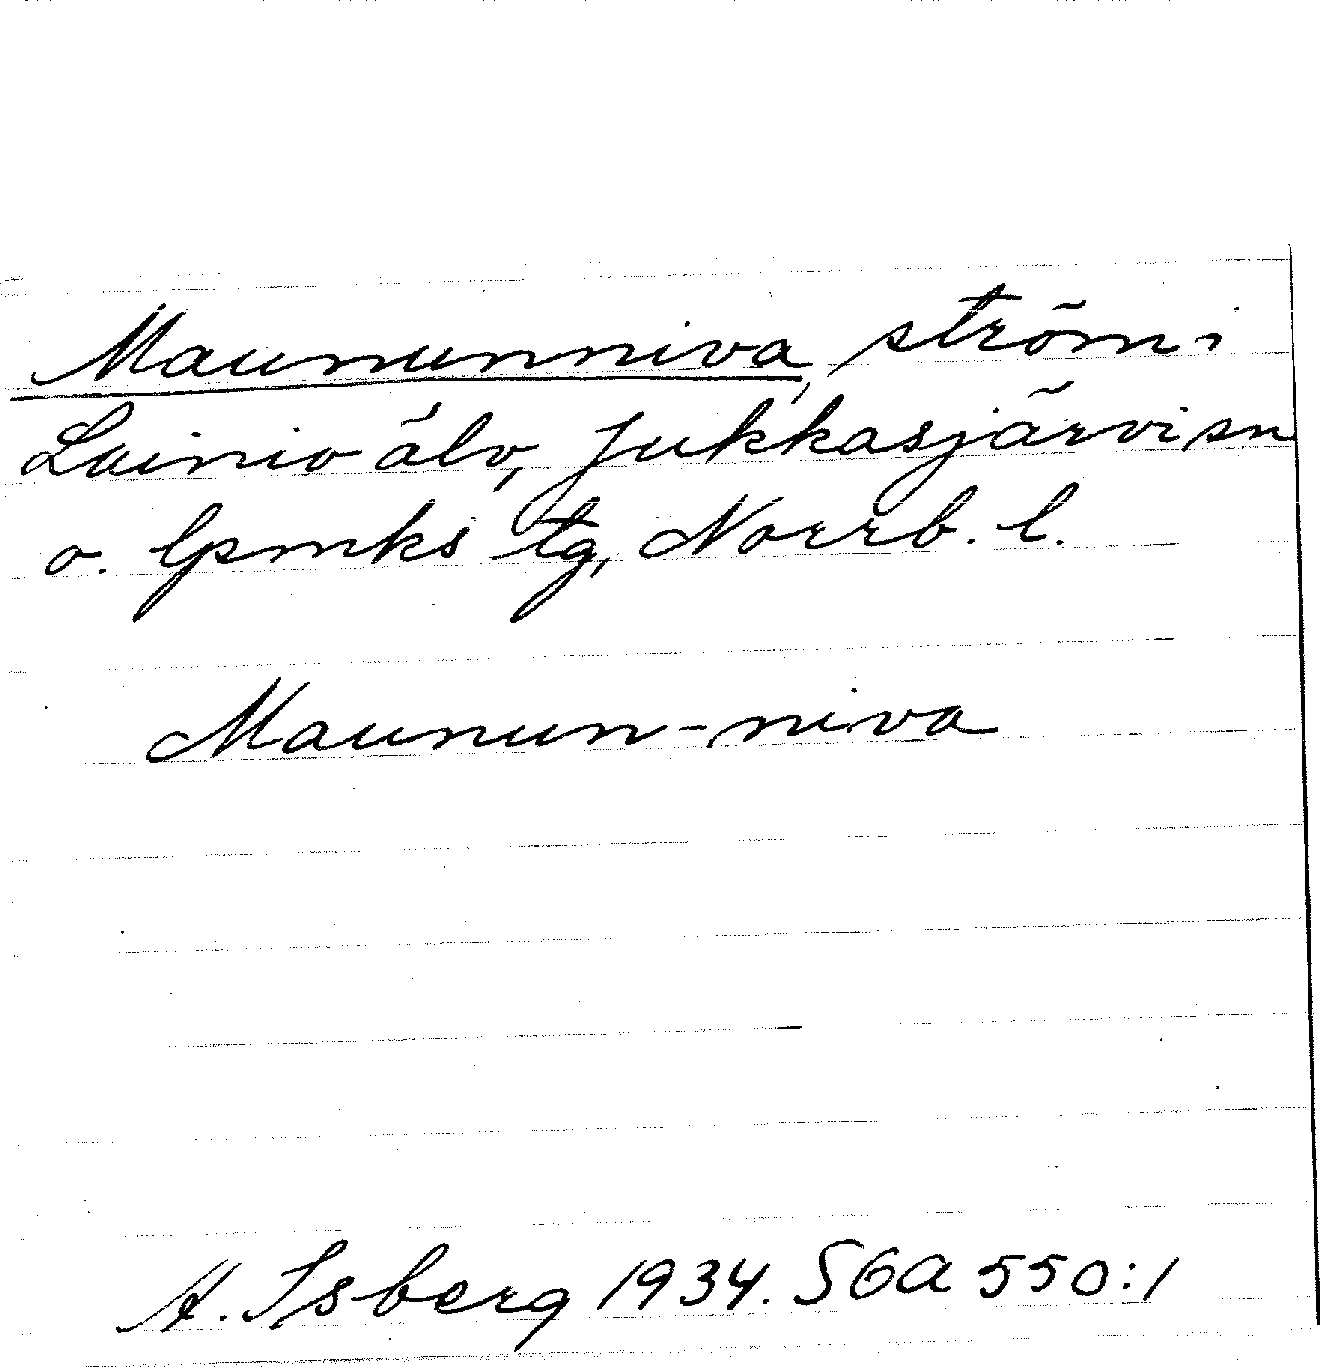 Maununniva, ström i
Lainio älv, Jukkasjärvi sn
o. lpmks tg, Norrb. l.
Maunun-niva
H. Isberg 1934. SGA 550:1